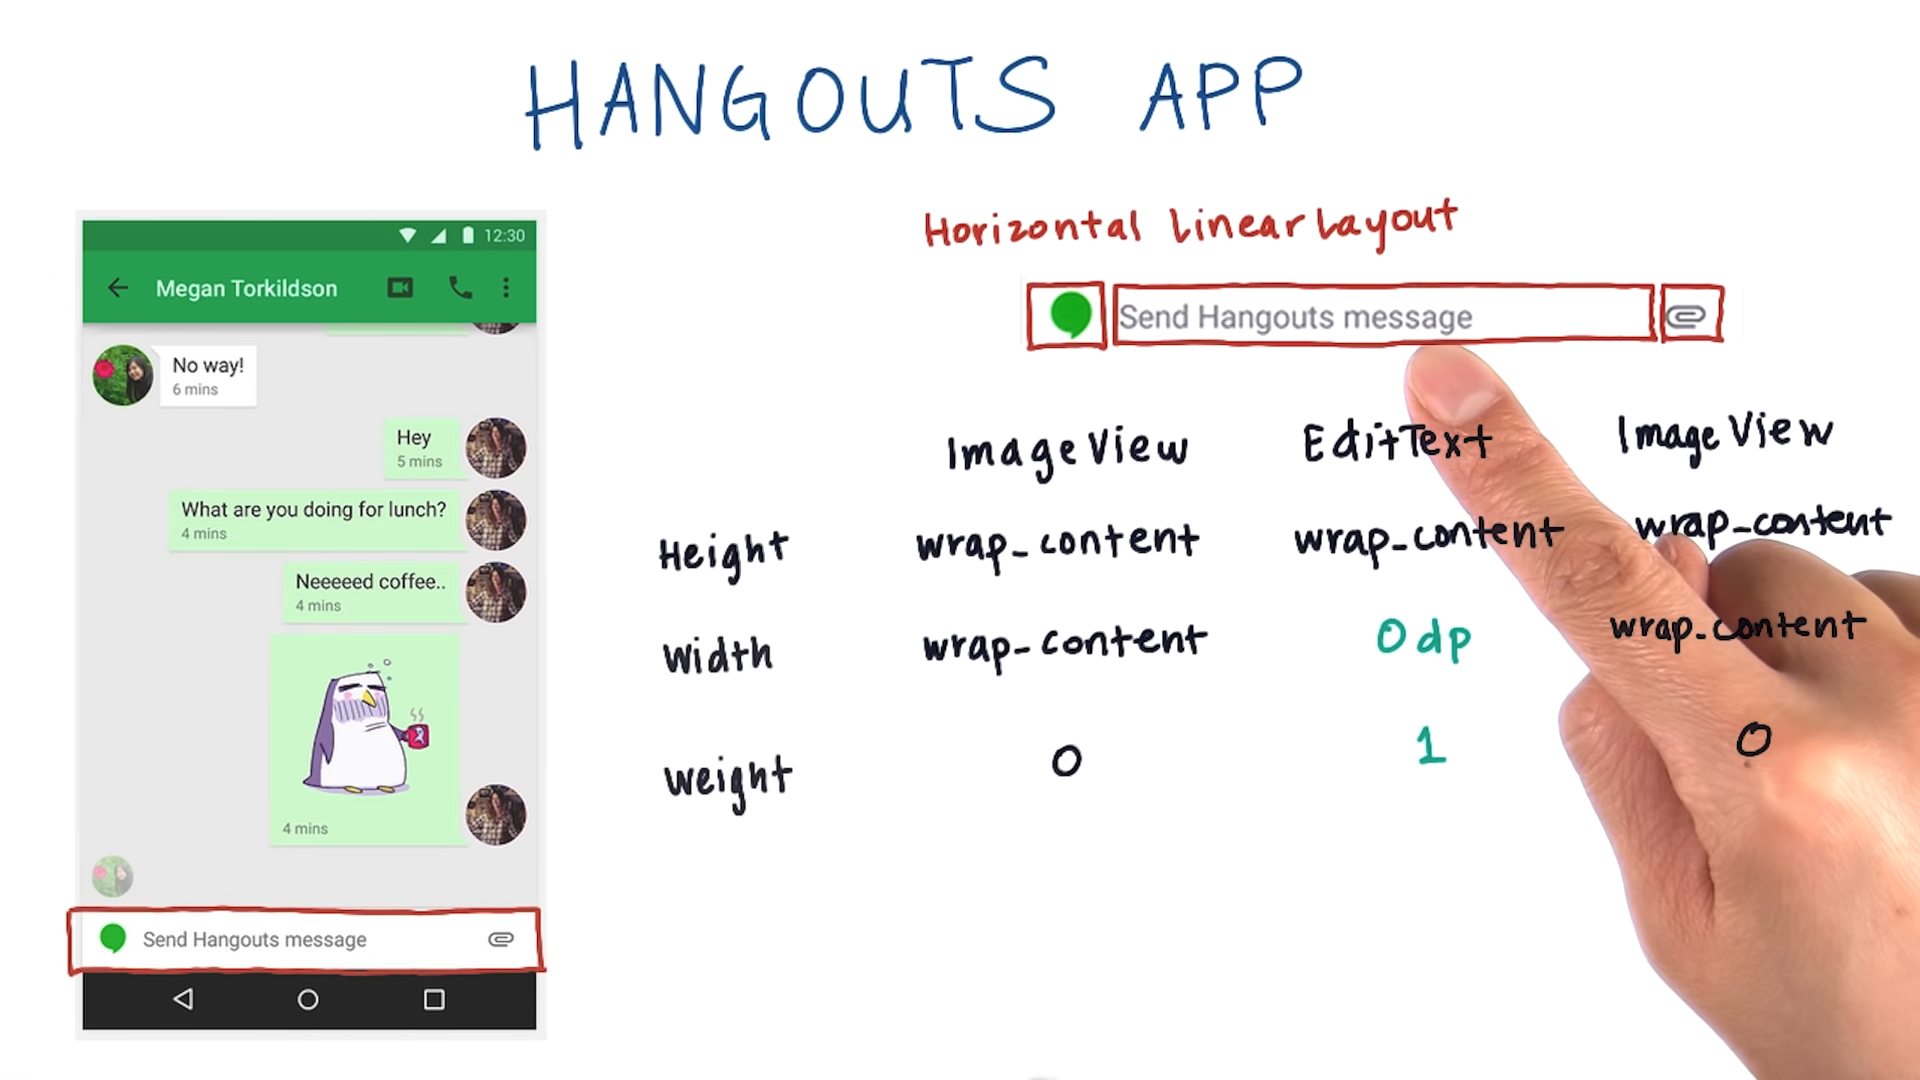 HANGOUTS APP
12:30
Megan Torkildson
No way!
6 mins
Hey
5 mins
What are you doing for lunch?
4 mins
Neeeeed coffee..
4 mins
4 mins
Send Hangouts message
Horizontal LinearLayout
Send Hangouts message
ImageView EditText ImageView
Height wrap_content wrap_content wrap_content
Width wrap_content 0dp wrap_content
Weight 0 1 0